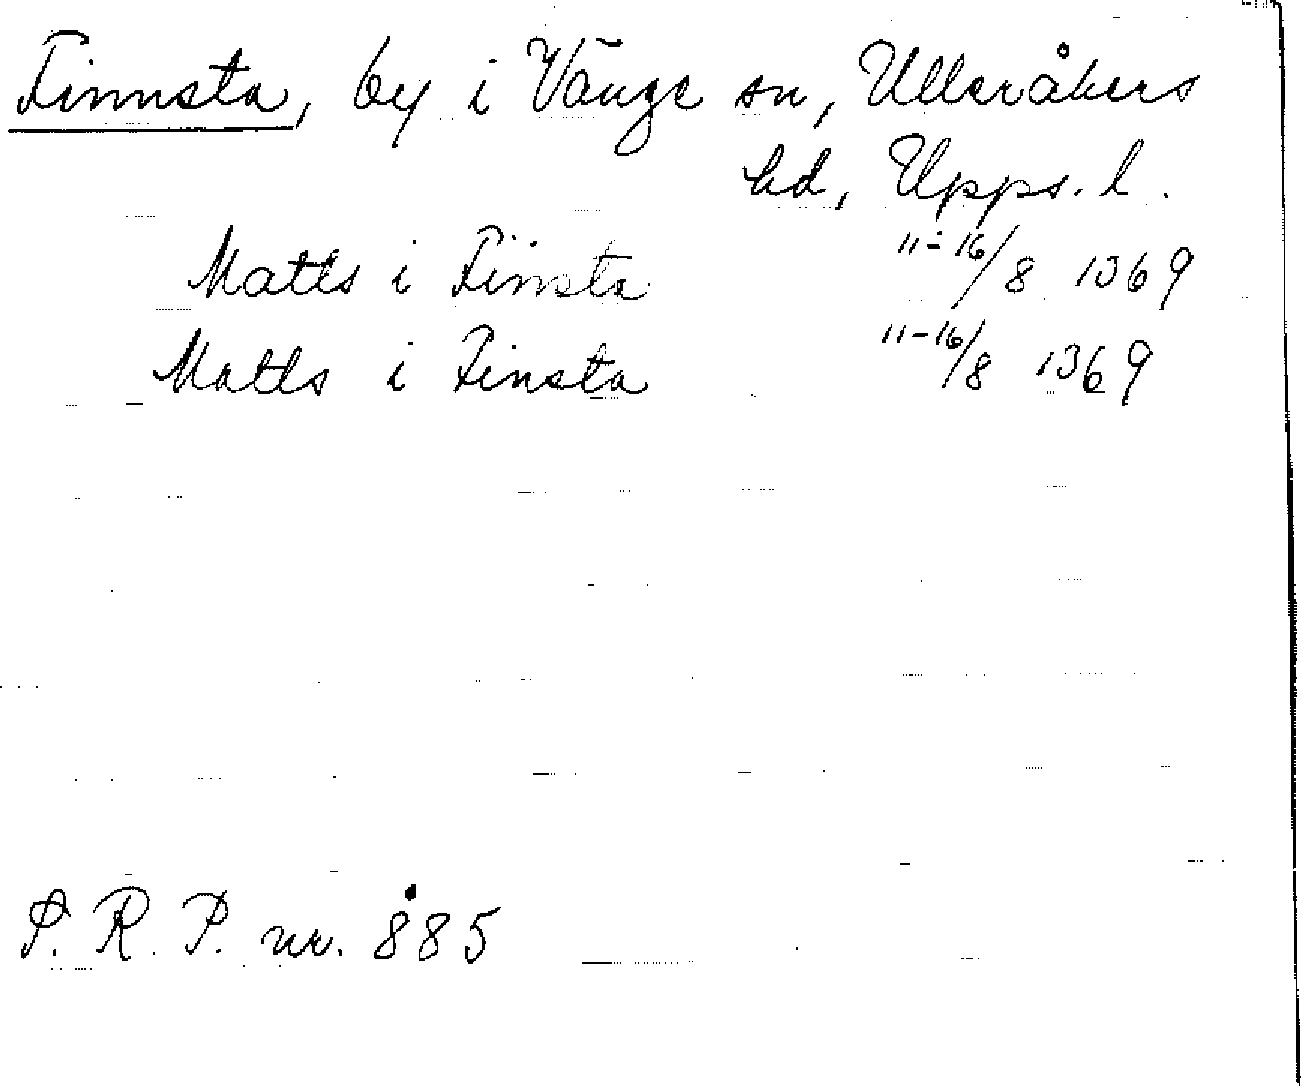 Finnsta, by i Vänge sn, Ulleråkers
hd, Upps. l.
Matts i Finsta 11-16/8 1369
Matts i Finsta 11-16/8 1369
S. R. P. nr. 885